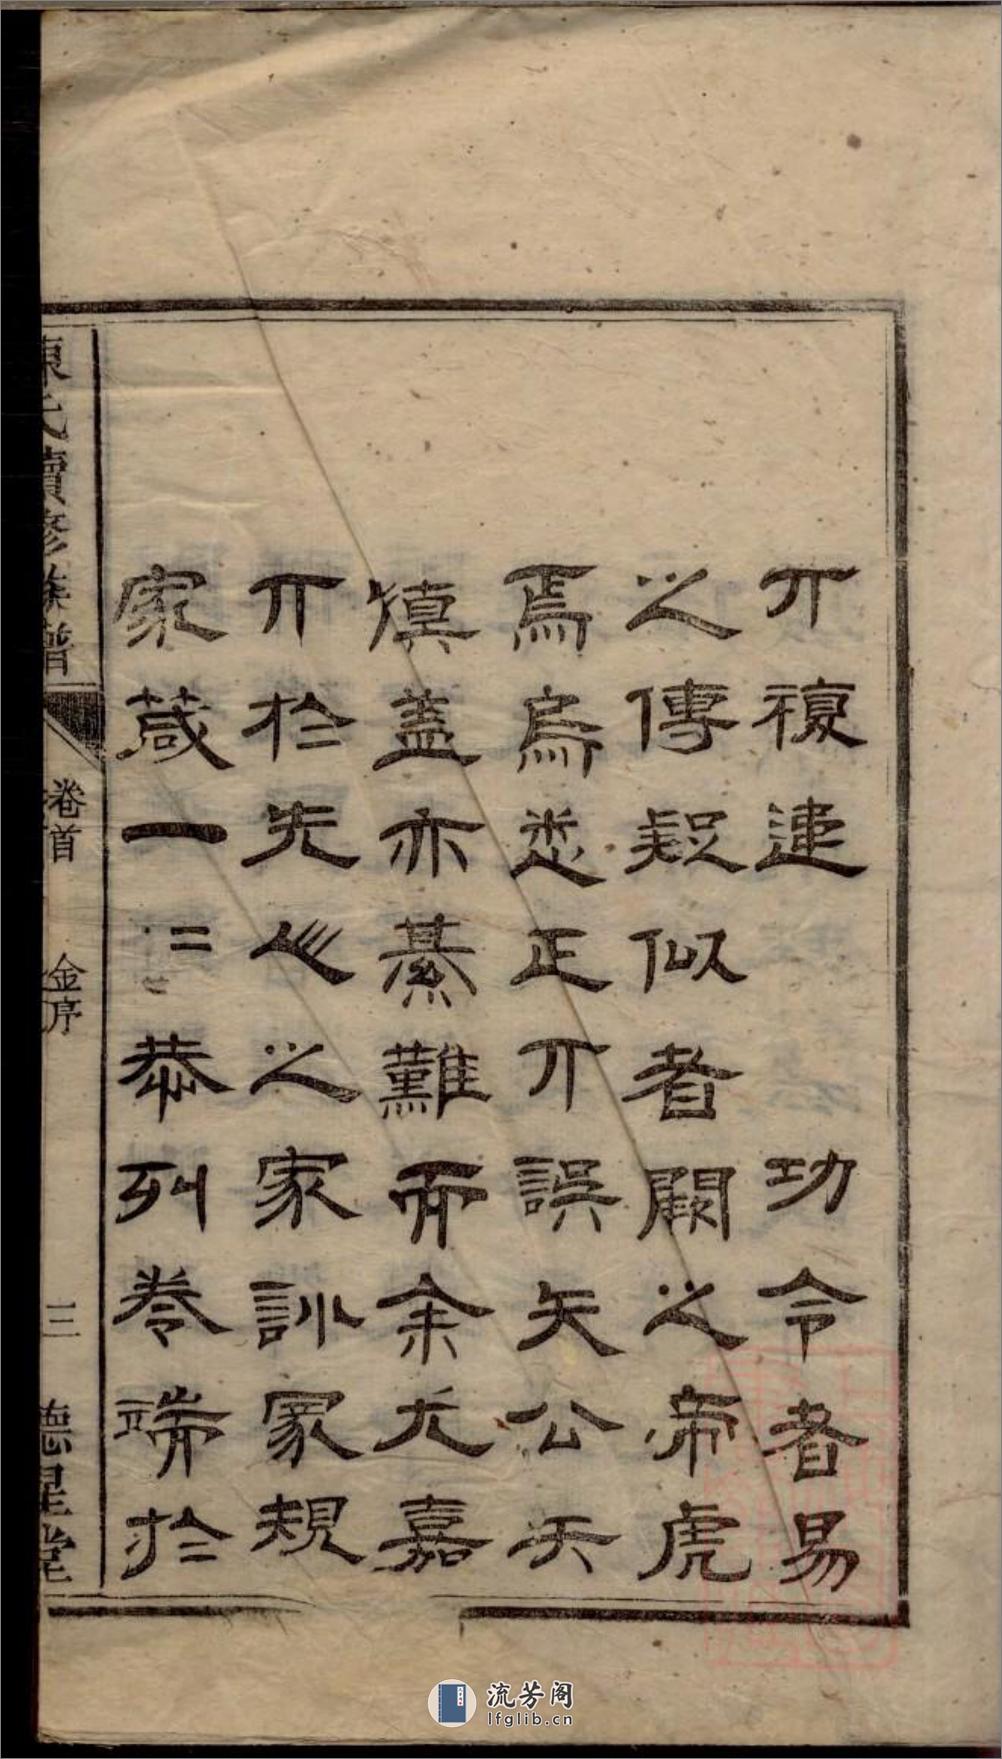 丌複違 功令者易
之傳疑似者闕之帝虎
焉烏悉正丌誤矢公矢
慎蓋亦綦難而余尤嘉
丌於先世之家訓家規
家箴一二恭列卷端於
陳氏續修族譜
卷首
金序
三
德星堂
流芳阁
lfglib.cn